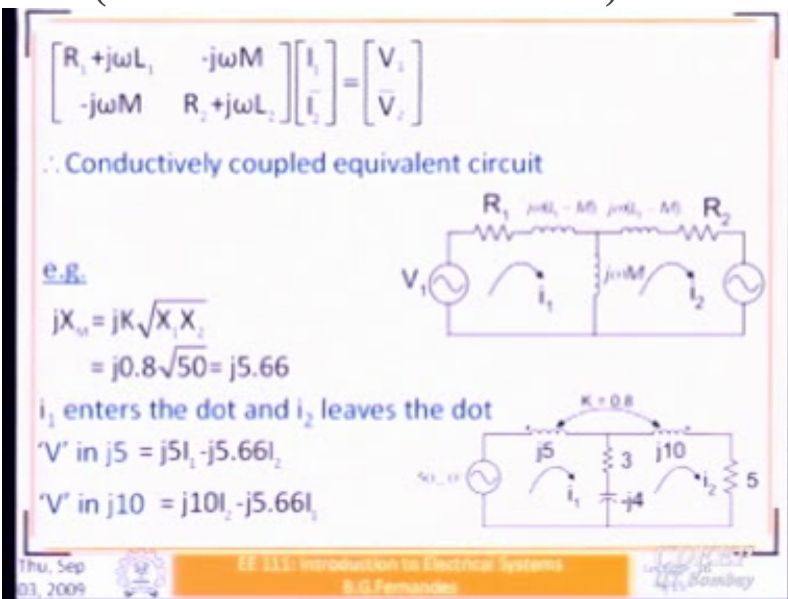 [R₁+jωL₁ -jωM] [I₁] = [V₁]
[-jωM R₂+jωL₂] [I₂] [V₂]
∴ Conductively coupled equivalent circuit
R₁ jω(L₁ - M) jω(L₂ - M) R₂
V₁ i₁ jωM i₂
e.g.
jXₘ = jK√X₁X₂
= j0.8√50 = j5.66
i₁ enters the dot and i₂ leaves the dot
'V' in j5 = j5I₁-j5.66I₂
'V' in j10 = j10I₂-j5.66I₁
K = 0.8
j5 3 j10
i₁ -j4 i₂ 5
Thu, Sep
03, 2009
EE 111: Introduction to Electrical Systems
B.G.Fernandes
CDEEP
IIT Bombay